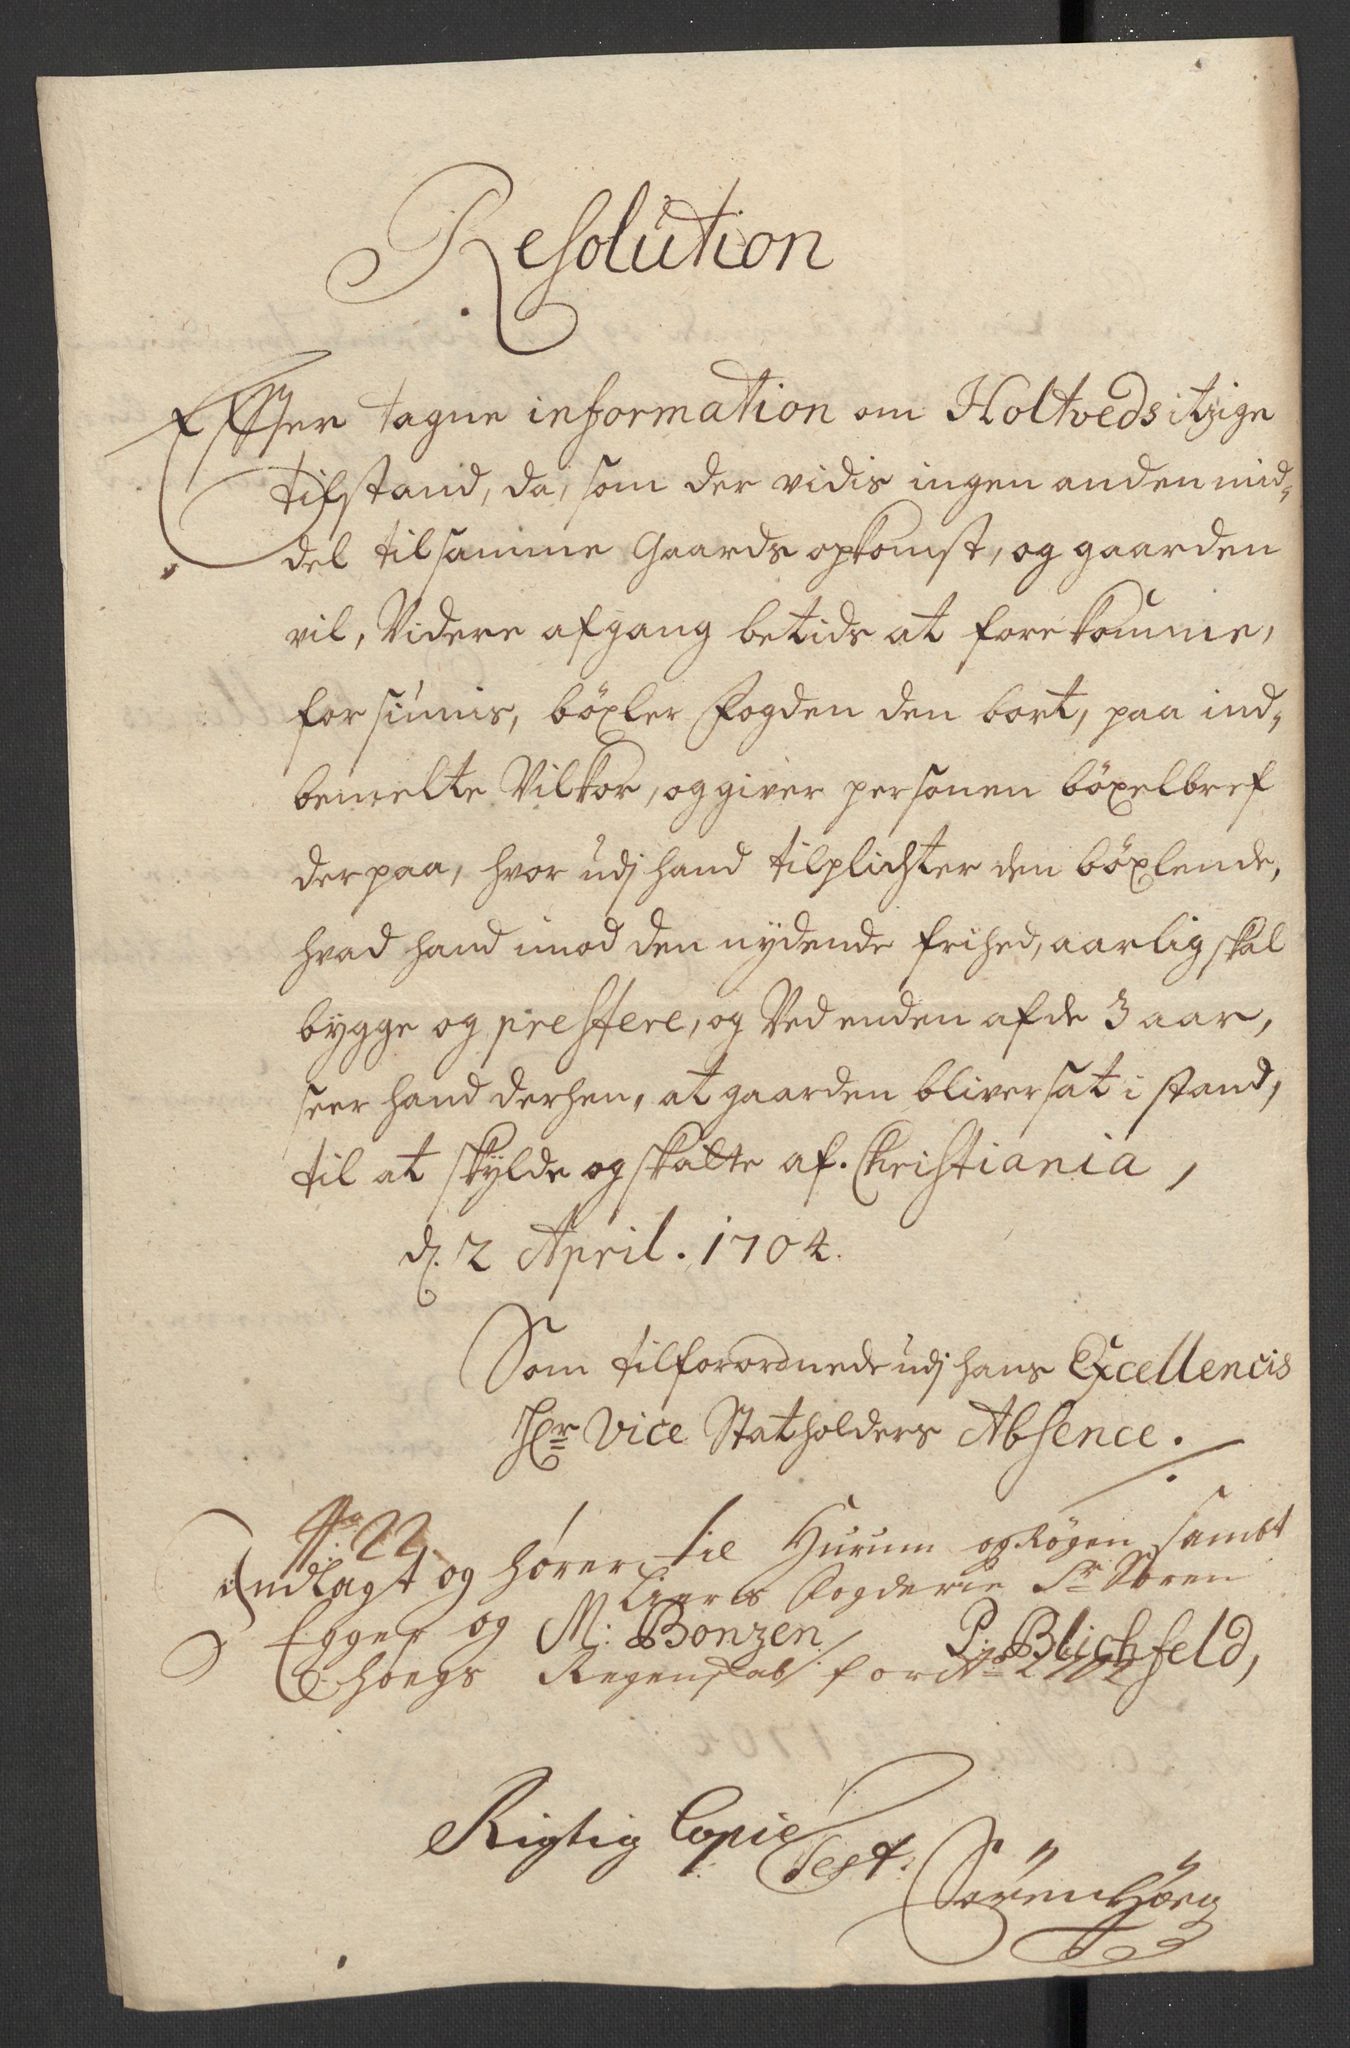 Resolution
Effter tagne information om Holtveds itzige
tilstand, da, som der vidis ingen anden mid,,
del til samme Gaards opkomst, og gaarden
vil, Videre afgang betids at forekomme,
forsiunis, böxler Fogden den bort, paa ind,,
bemelte Vilkor, og giver personen böxelbref
derpaa, hvor udj hand tilplichter den böxlende,
hvad hand imod den nydende frihed, aarlig skal
bygge og prestere, og Ved enden af de 3 aar,
seer hand derhen, at gaarden bliver sat i stand,
til at skylde og skatte af. Christiania,
d. 2 April. 1704.
Som tilforordnede udj hans Excellencis
Hr Vice Statholders Absence.
22.
Indlagt og hører til Hurum og Røgen sambt
Liers Fogderie Sr Søren
Egger og M: Bonzen P: Blichfeld,
Høegs Regenskab for Ao 1702
Rigtig Copie
Test.
Sören Höeg